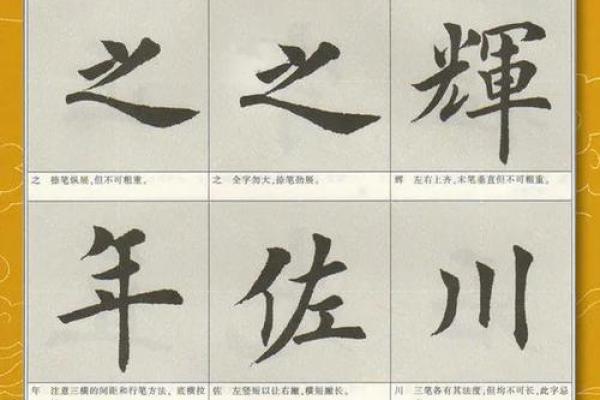 之 之 輝
之 捺笔纵展,但不可粗重。
之 全字勿大,捺笔劲展。
辉 左右上齐,末笔垂直但不可粗重。
年 佐 川
年 注意三横的间距和行笔方法。底横拉
佐 左竖短以让右撇,横短撇长。
川 三笔各有其法度,但均不可长,此字忌